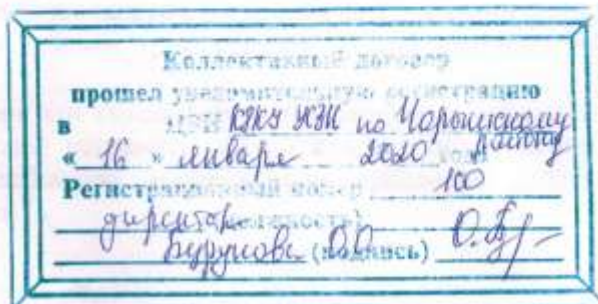 Коллективный договор
прошел уведомительную регистрацию
в ЦЗН КГКУ УСЗН по Чарышскому району
« 16 » января 2020 года
Регистрационный номер 100
директор (должность)
О.О. (подпись)